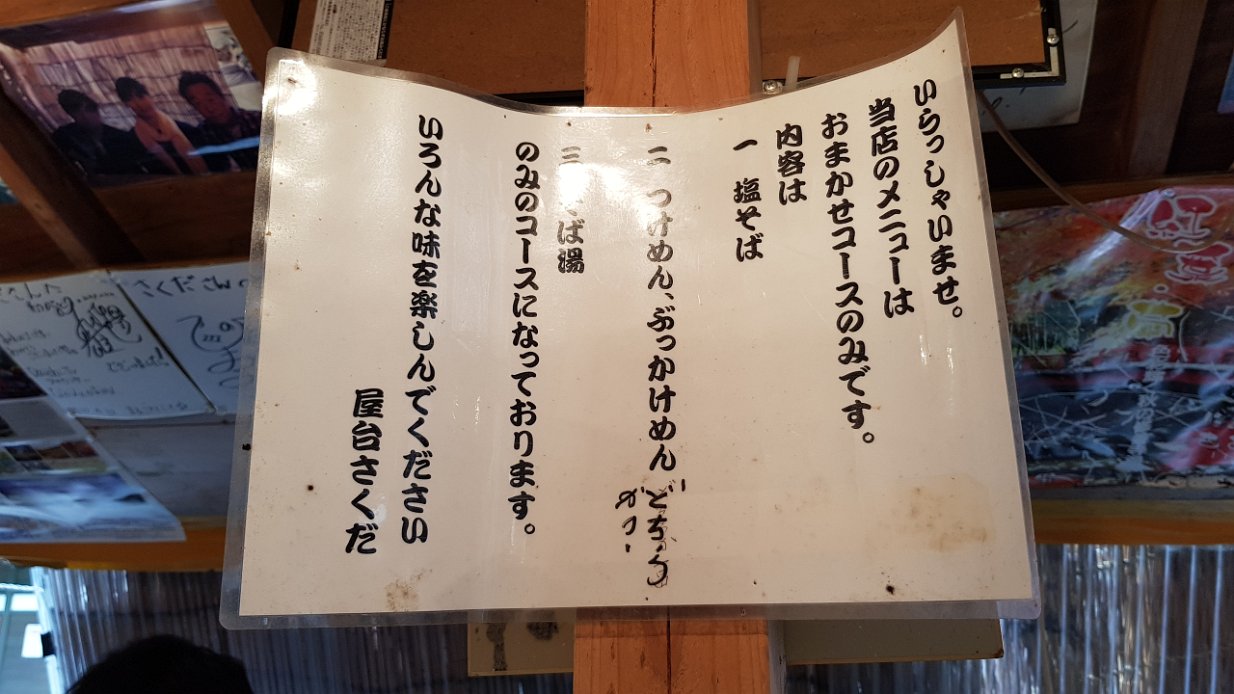 いらっしゃいませ。
当店のメニューは
おまかせコースのみです。
内容は
一 塩そば
二 つけめん、ぶっかけめん どちらか
三 そば湯
のみのコースになっております。
いろんな味を楽しんでください
屋台さくだ
さくださんの